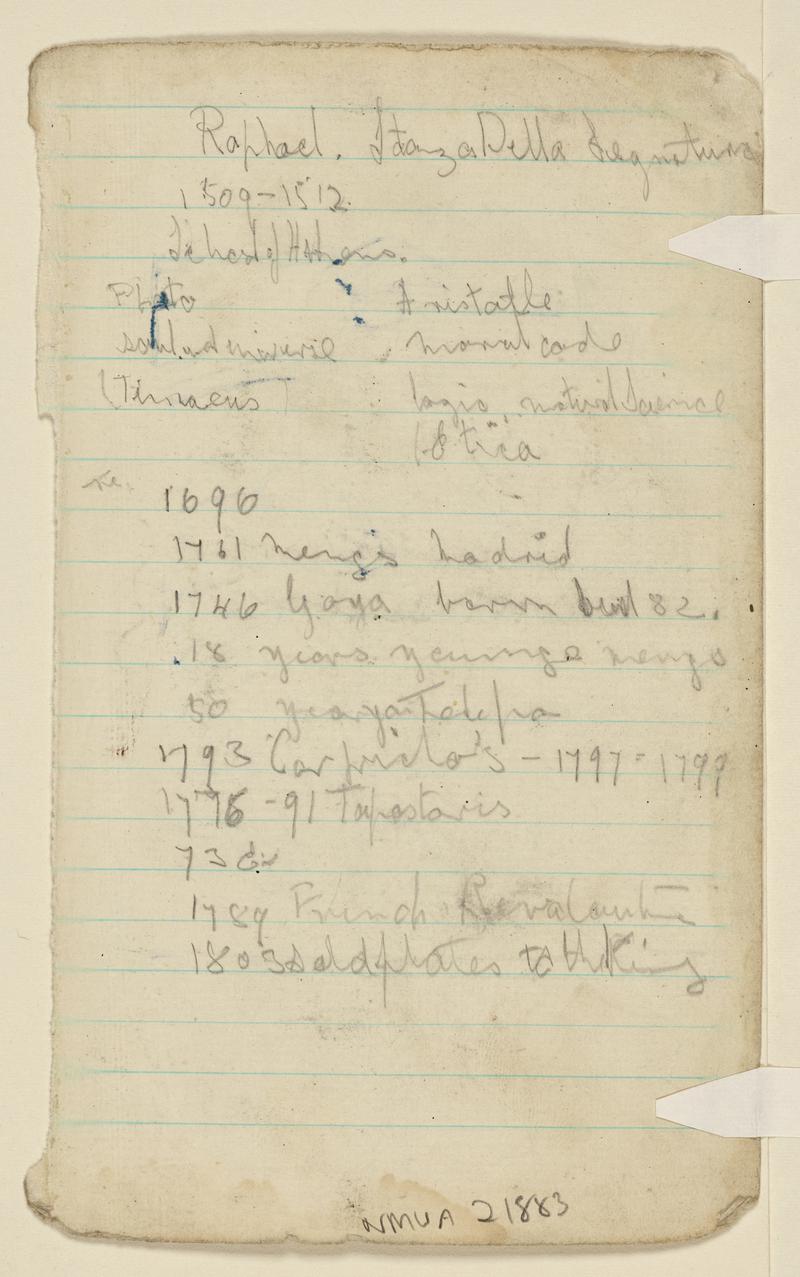 Raphael. Stanza Della Segnatura
1509-1512.
School of Athens.
Plato Aristotle
soul and moral code
(Timaeus) logic, natural Science
(Etica
1696
1761 Mengs Madrid
1746 Goya born died 82.
18 years younge mengs
50 years Tiepolo
1793 Carpricho's - 1797 - 1799
1776 - 91 Tapestaris
73
1789 French Revoloution
1803 sold plates to th King
NMWA 21883